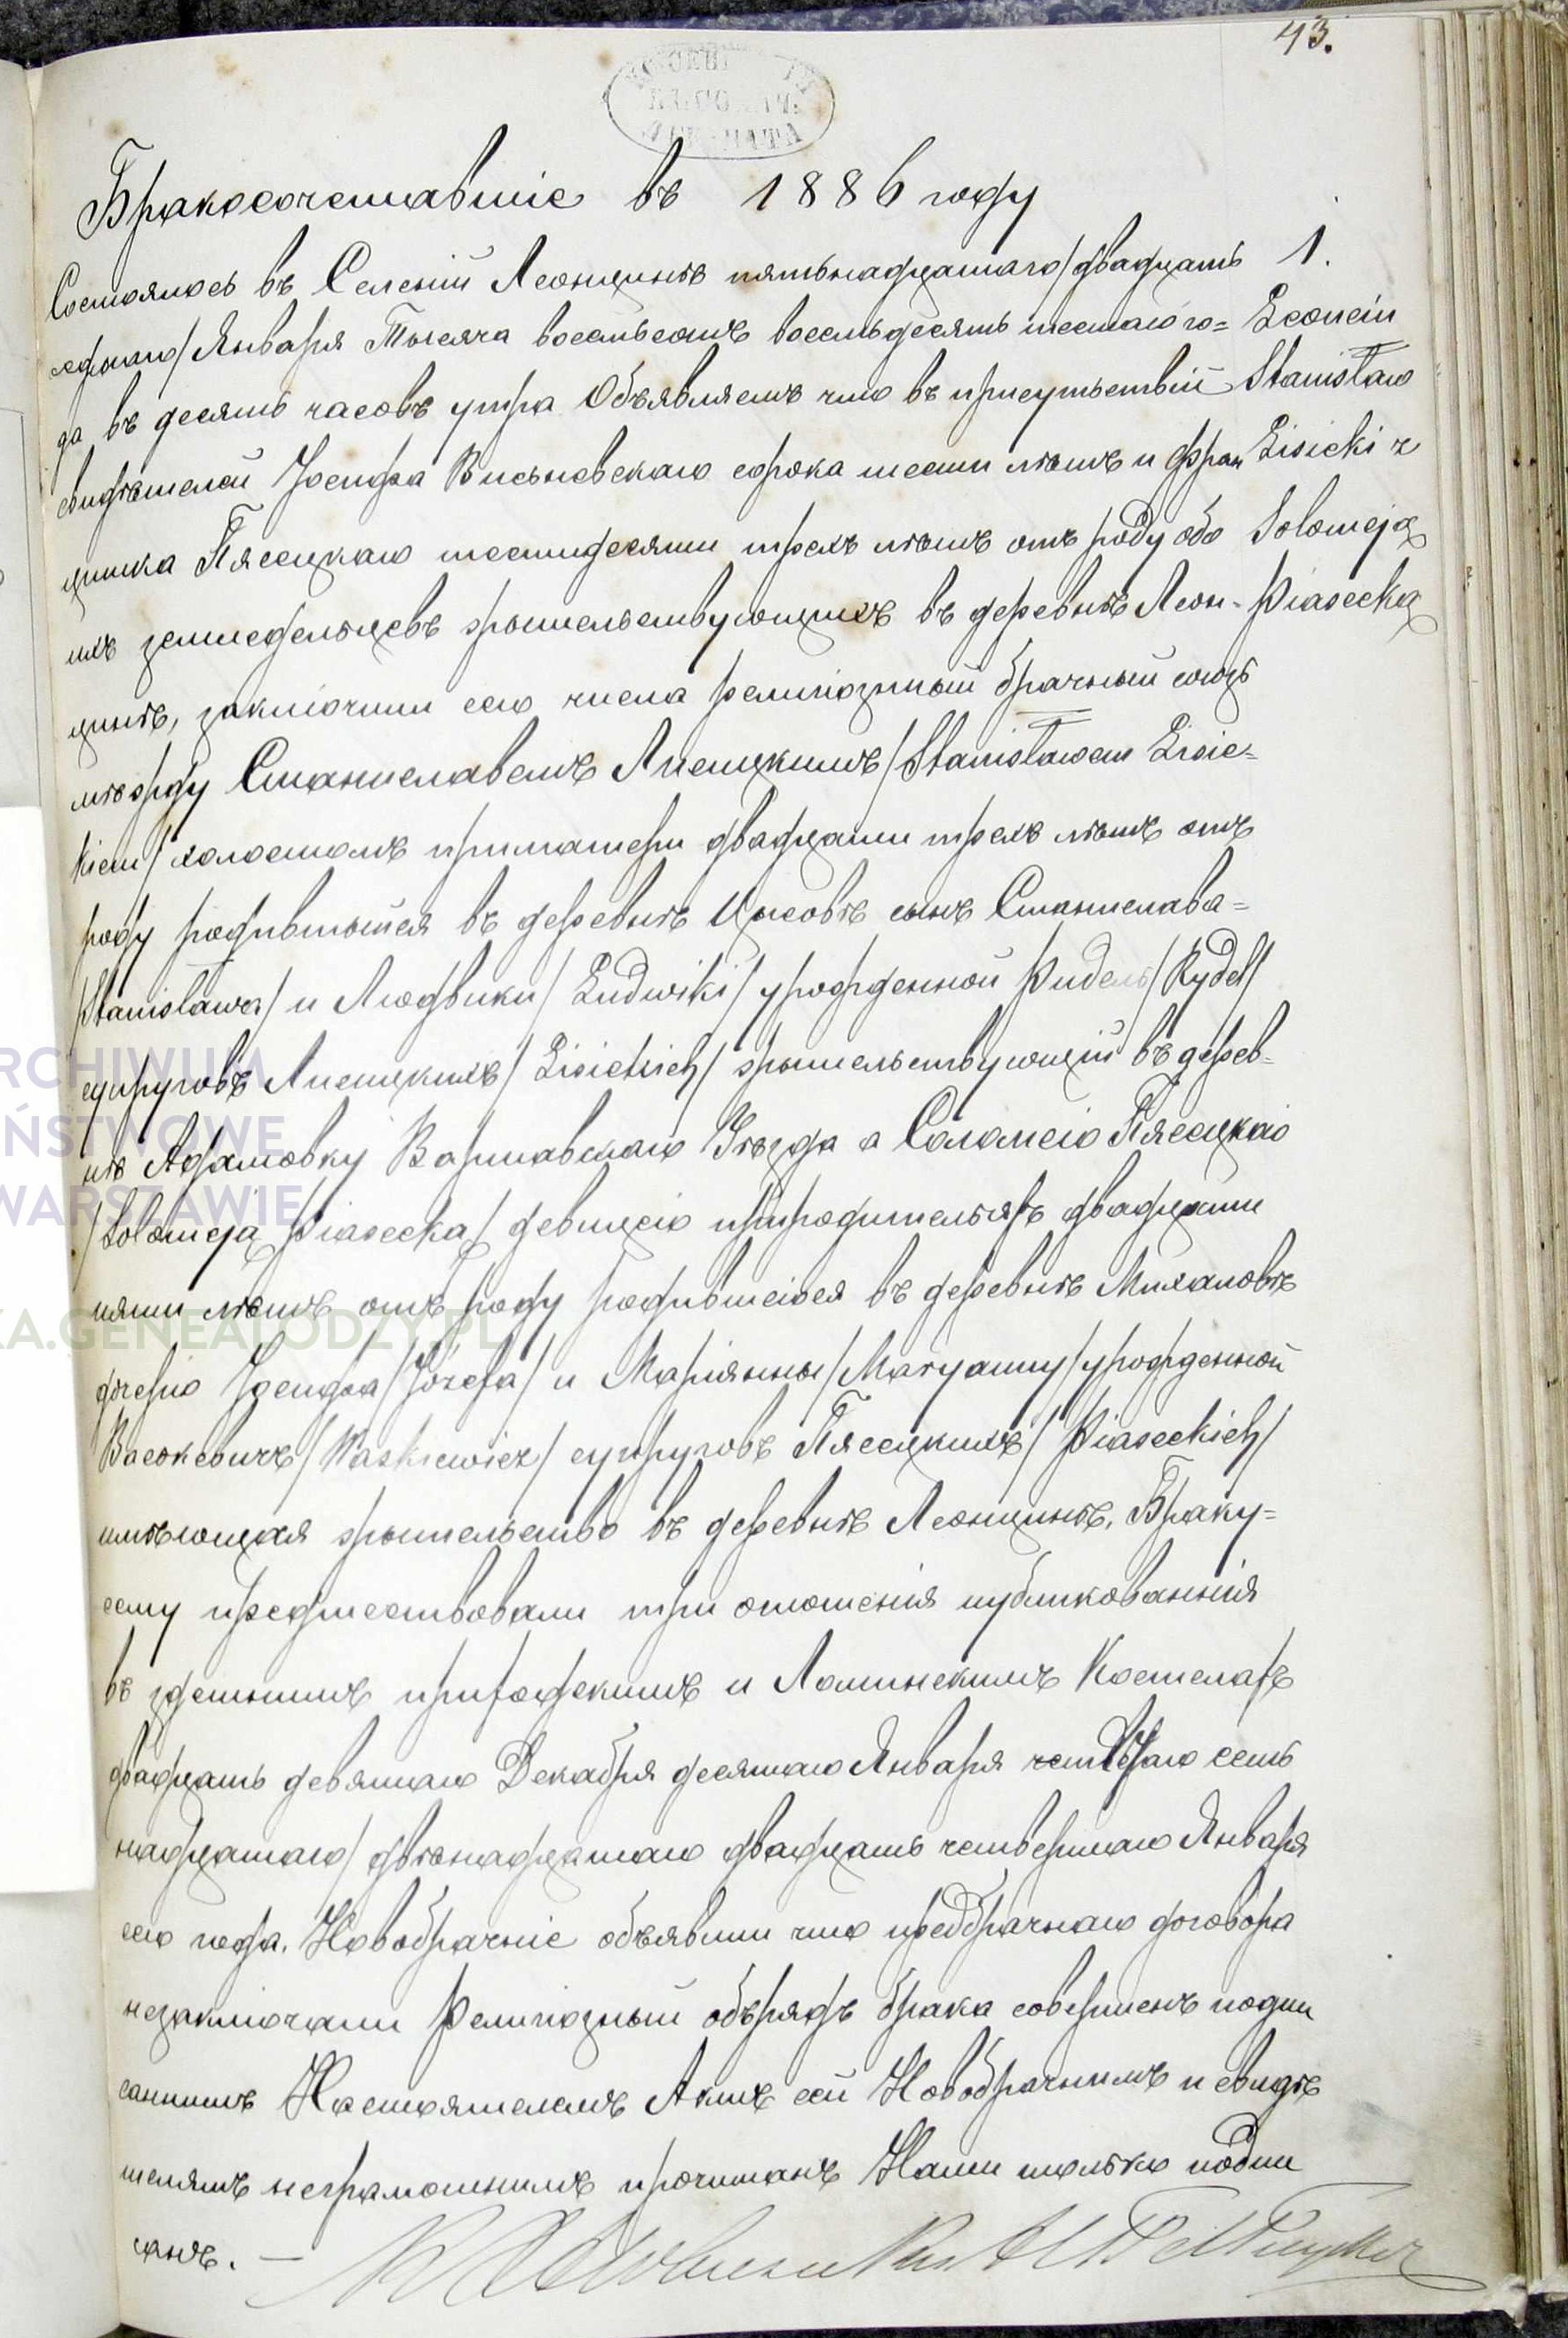 43.
Бракосочетавшіе въ 1886 году
1.
Состоялось въ Селеніи Леонцинѣ пятьнадцатаго/двадцать
седмаго/ Января Тысяча восемьсотъ восемьдесятъ шестаго го=
да въ десять часовъ утра Объявляемъ что въ присутьствіи
свидѣтелей Іосифа Висьневскаго сорока шести лѣтъ и Фран
цишка Пясецкаго шестидесяти трехъ лѣтъ отъ роду обо
ихъ земледельцевъ жительствующихъ въ деревнѣ Леон-
цинѣ, заключили сего числа религіозный брачный союзъ
Leoncin
Stanisław
Lisicki z
Solomeją
Piasecką
между Станиславемъ Лисицкимъ/Stanisławem Lisic=
kiem/ холостомъ приматери двадцати трехъ лѣтъ отъ
роду родившыйся въ деревнѣ сынъ Станислава=
/Stanisława/ и Людвики/ Ludwiki/ урожденной Ридель/Rydel/
супруговъ Лисицкихъ/ Lisickich/ жительствующій въ дерев=
нѣ Адамовку Варшавскаго Уѣзда а Саломеію Пясецкаю
/Solomeją Piasecką/ девицею природительяхъ двадцати
пяти лѣтъ отъ роду родившеюся въ деревнѣ Михаловѣ
дочерю Іосифа/Józefa/ и Маріянны/Maryanny/урожденной
Васькевичъ/Waskiewicz/ супруговъ Пясецкихъ/ Piaseckich/
имѣющая жительство въ деревнѣ Леонцинѣ. Браку=
сему предшествовали три публикованнія
въ здешнимъ приходскимъ и Ломинскимъ Костелахъ
двадцать девятаго Декабря десятаго Января семь
надцатаго/ двѣнадцатаго двадцать четвертаго Января
сего года. Новобрачніе объявили что предбрачнаго договора
незаключали Религіозный обърядъ брака совершенъ подпи
саннимъ Настоятелемъ Актъ сей Новобрачнимъ и свидѣ
телямъ неграмотнимъ прочитанъ Нами только подпи
санъ. —